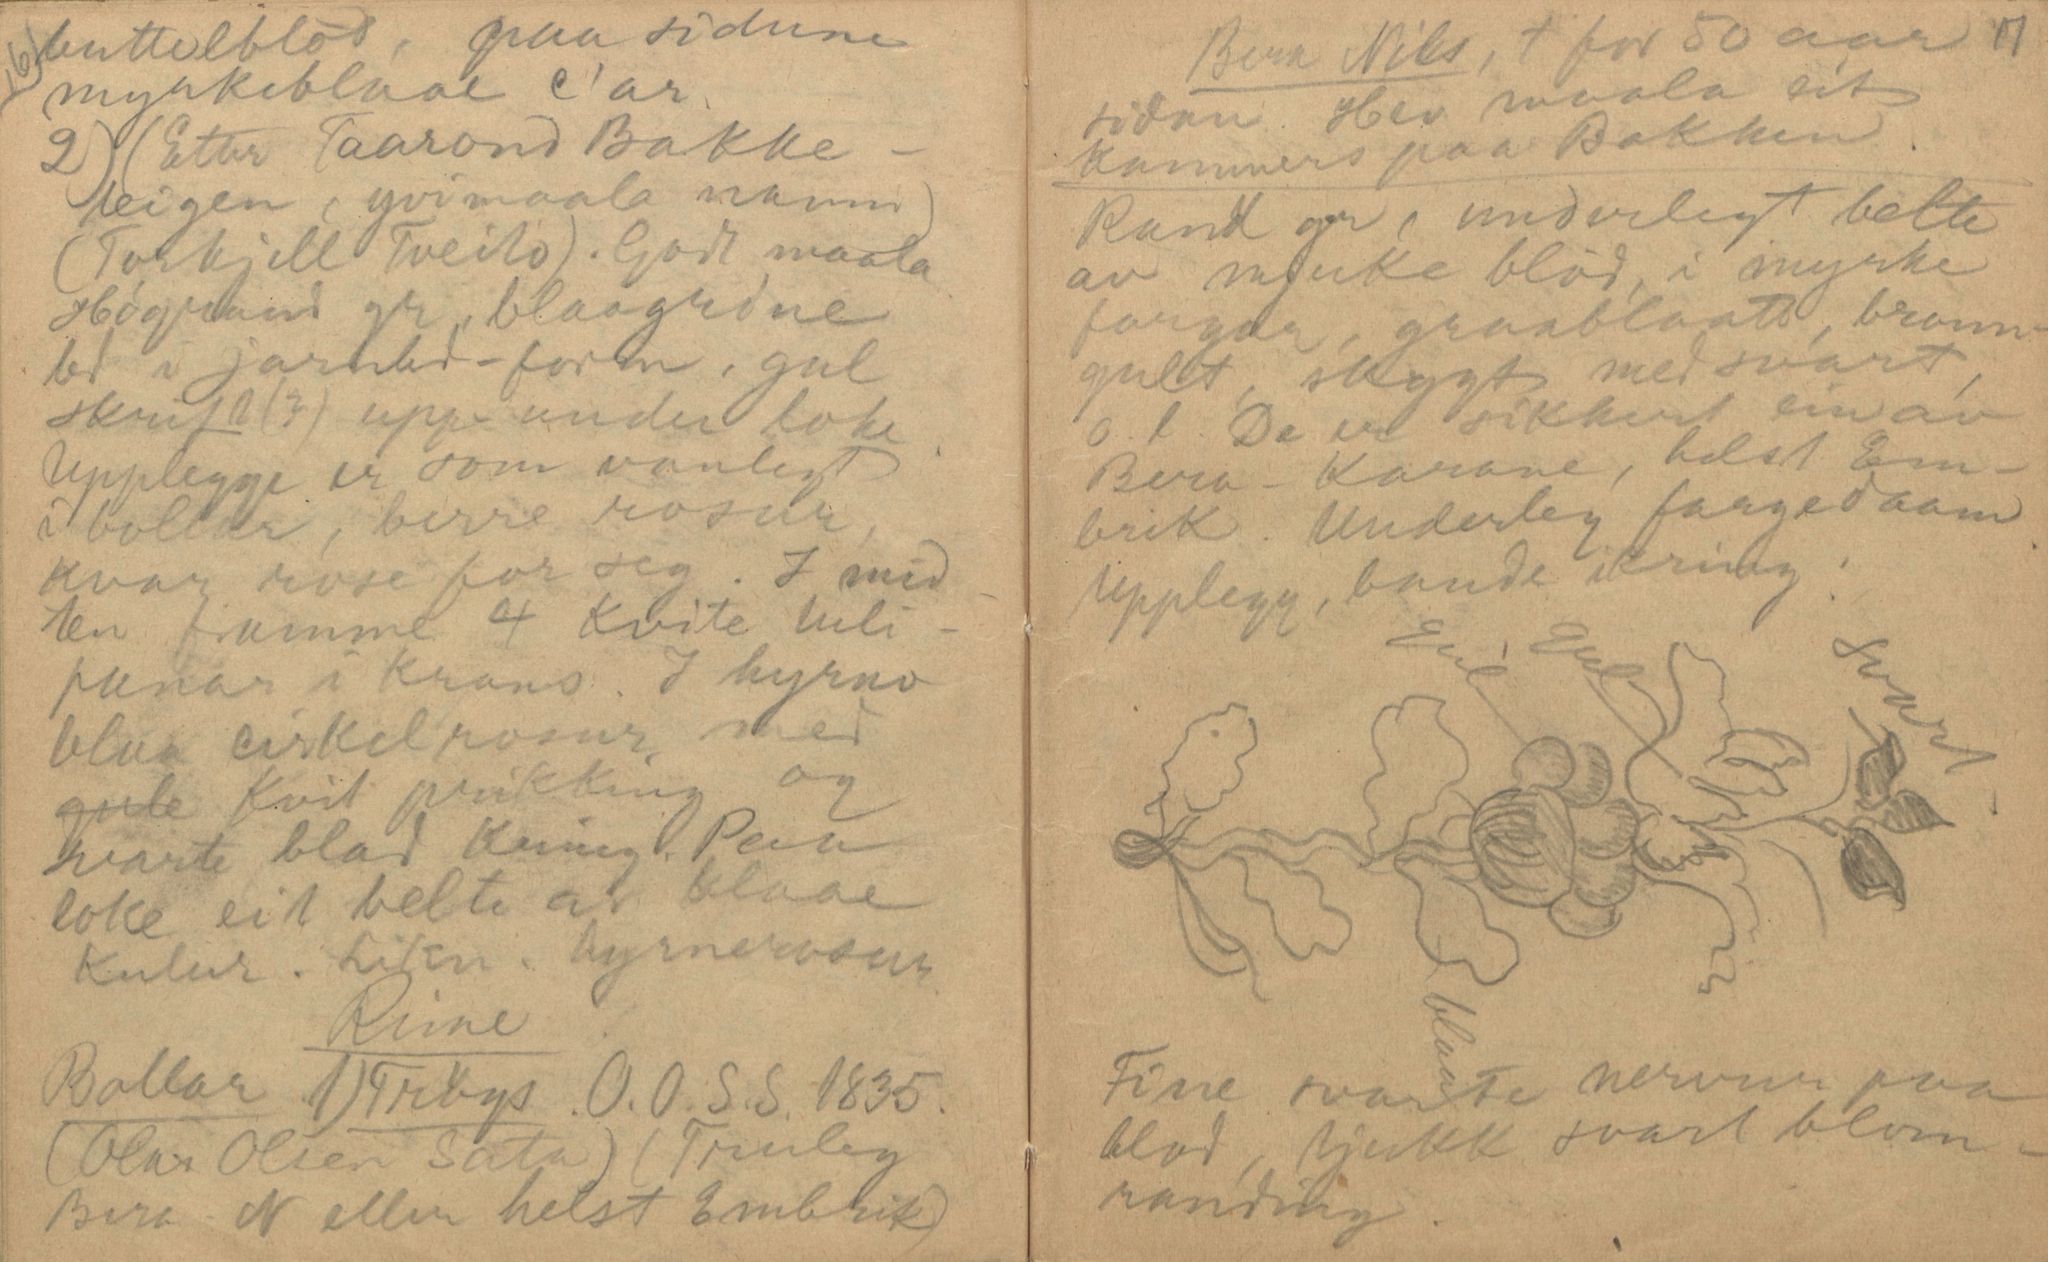 16)
buttelblöd, paa sidune
myrkeblaae c'ar.
2) (Etter Taarond Bakke-
teigen, yvimaala namn)
(Torkjell Tveito). Godt maala
Högrand gr, blaagröne
bd i jarnbd-form, gul
skrift (?) upp-under loke.
Upplegge er som vanlegt
i bollar, berre rosur,
kvar rose for seg. I mid-
ten framme 4 kvite tuli-
panar i krans. I hyrno
blaa cirkelrosur med
gule kvit prikking og
svarte blad kring. Paa
loke eit belte av blaae
kulur. Likn. hyrnerosur
Rime
Bollar 1) Tröys. O.O.S.S. 1835.
(Olav Olsen Sata) (Truleg
Bera-N eller helst Embrik)
17
Bera Nils, † for 50 aar
sidan. Hev maala eit
kammers paa Bakken.
Rand gr, underlegt belte
av mjuke blöd, i myrke
fargar, graablaatt, brunn-
gult, skygt med svart,
o. l. De er sikkert ein av
Bera-Karane, helst Em-
brik. Underleg fargedaam
Upplegg, bande ikring:
Gul Gul Svart
blaa
Fine svarte nervur paa
blod, tjukk svart blom-
randing.